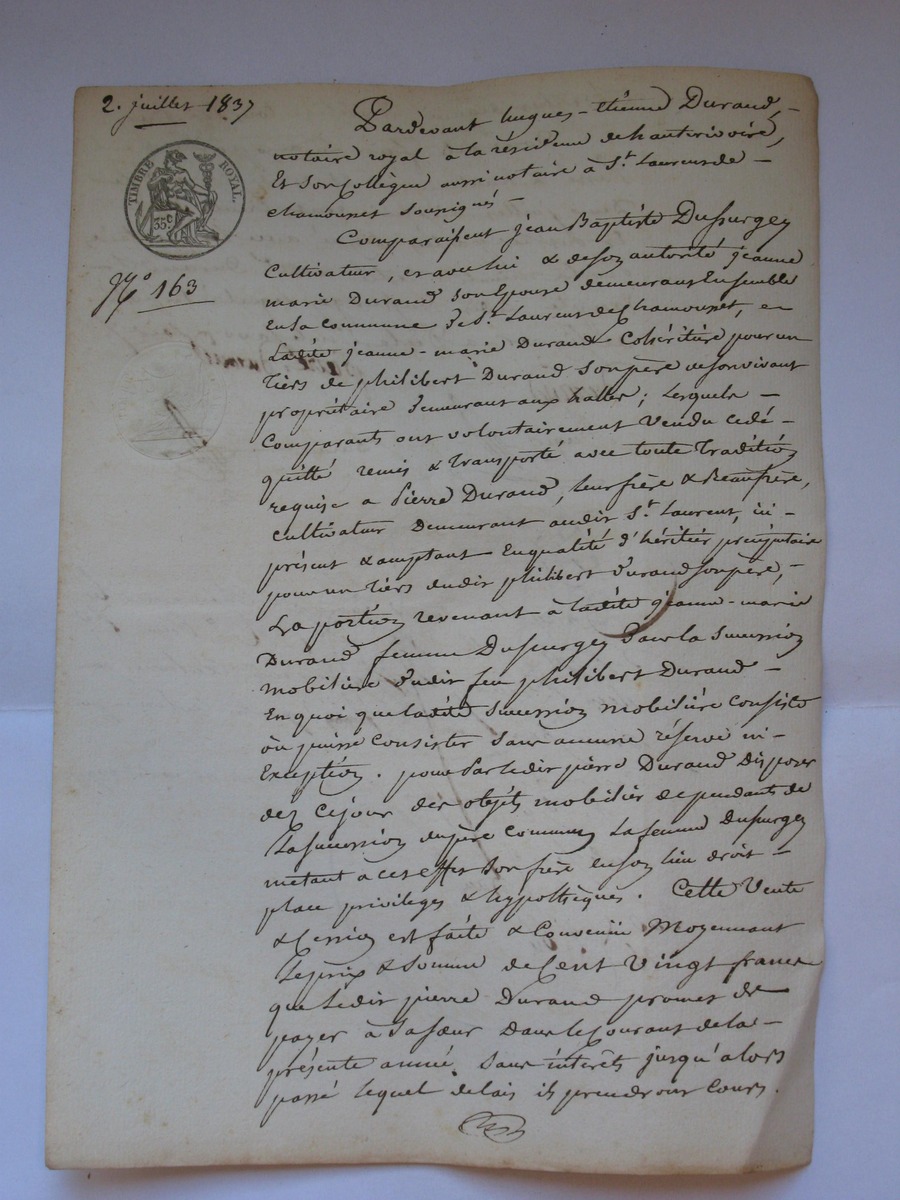 2. juillet 1837
TIMBRE ROYAL.
35c
No 163
Pardevant hugues-étienne Durand,
notaire royal à la résidence de hauterivoire,
Et son Collègue aussi notaire à St. Laurent de
chamousset soussignés
Comparaissent jean Baptiste Dussurgey
Cultivateur, et avec lui & de son autorité jeanne
marie Durand son Epouse demeurans Ensemble
En la Commune de St. Laurent de Chamousset, en
Ladite jeanne-marie Durand Cohéritière pour un
tiers de philibert Durand son père de son vivant
propriétaire demeurant aux halles; Lesquels
Comparants ont volontairement Vendu cédé
quitté remis & transporté avec toute tradition
requise a Pierre Durand, leur frère & Beaufrère,
cultivateur Demeurant audit St. Laurent, ici
présent & acceptant En qualité d'héritier préciputaire
pour un tiers dudit philibert Durand son père,
La portion revenant à ladite jeanne-marie
Durand femme Dussurgey Dans la Succession
mobilière dudit feu philibert Durand
En quoi que ladite Succession mobilière Consiste
où puisse Consister Sans aucune réserve ni
Exception. pour Par ledit pierre Durand Disposer
dez Cejour des objets mobilier dependants de
La succession du père commun La femme Dussurgey
mettant a cet effet Son frère en son lieu droit
place privileges & hypothèques. Cette Vente
& Cession est faite & Convenüe Moyennant
Le prix & Somme de Cent Vingt francs
que Ledit pierre Durand promet de
payer à Sa sœur Dans le Courant de la
présente année Sans intérêts jusqu'alors
passé lequel delais ils prendront Cours.